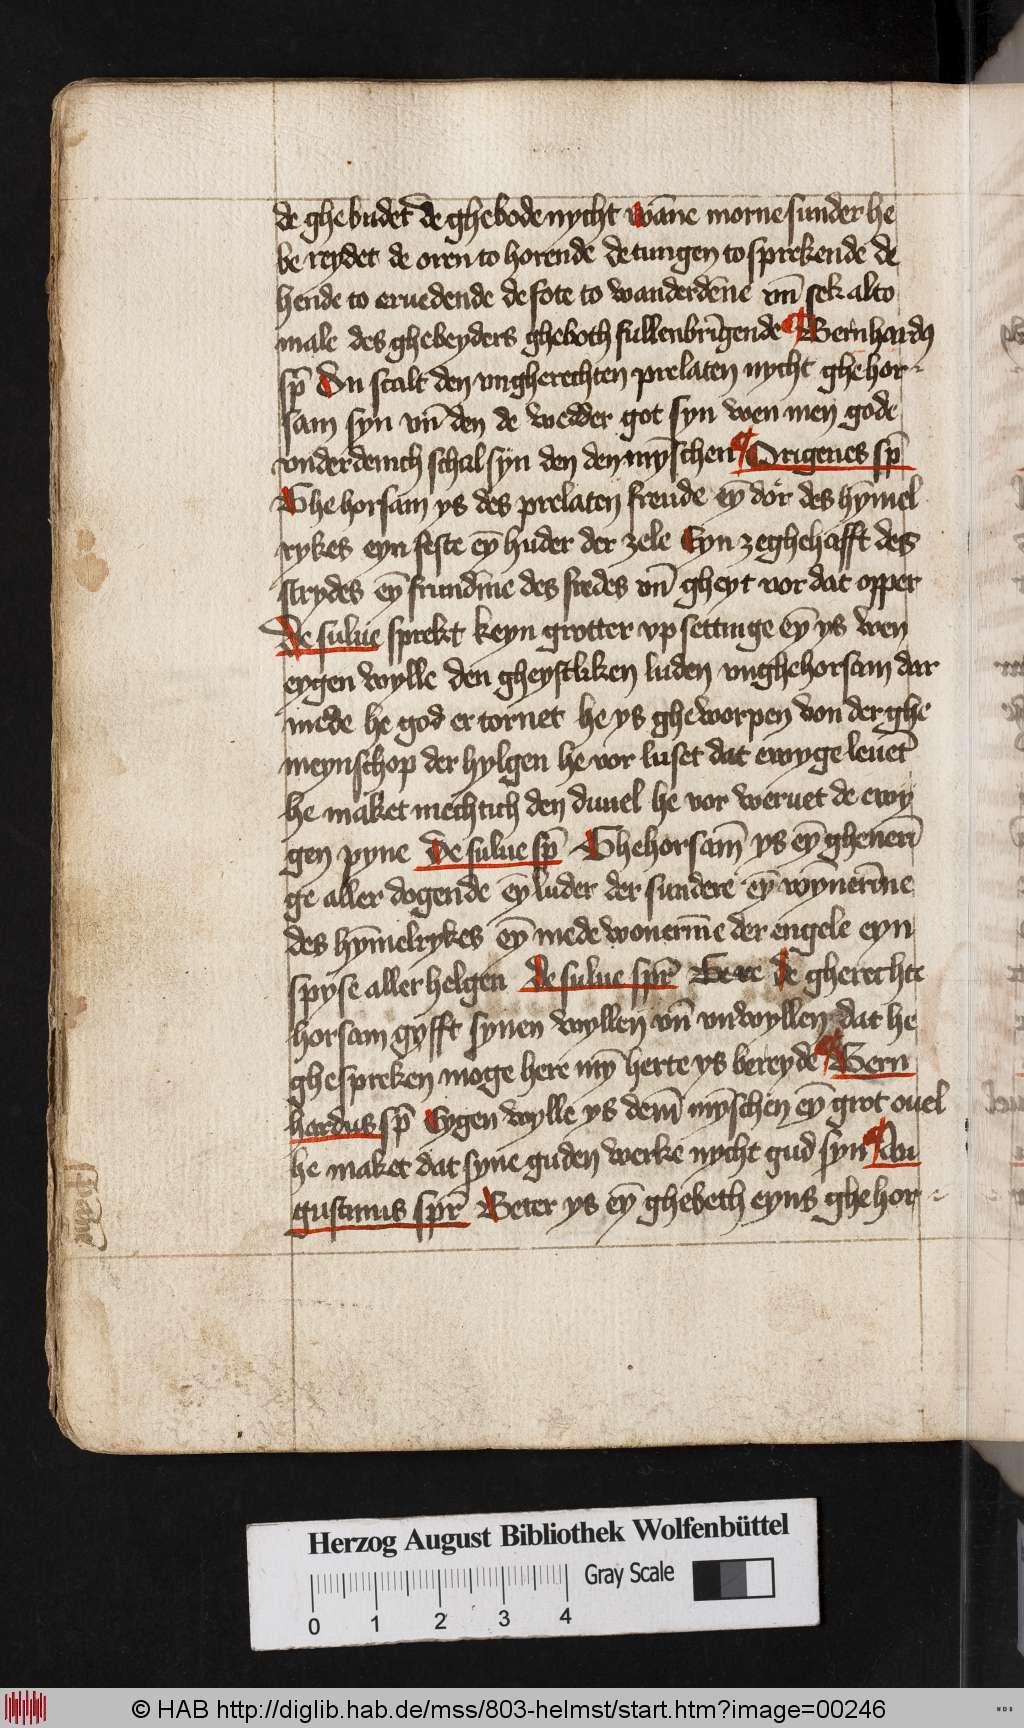 de ghebudet de ghebode nycht wāne morne sunder he
be reydet de oren to horende de tungen to sprekende de
hende to eruedende de fote to wanderdēne vn̄ sek alto
male des ghebeyders gheboth fullenbrīgende Bernhardꝰ
sp̄ Du scalt den vngherechten prelaten nycht ghehor
sam syn vn̄ den de wedder got syn wen men gode
vnderdenich schal syn den den mȳschen Origenes sp̄
Ghehorsam ys des prelaten freude eȳ dör des hȳmel
rykes eyn feste eȳ huder der zele Eyn zeghehafft des
strydes eȳ frundīne des fredes vn̄ gheyt vor dat opper
De sulue sprekt keyn grotter vpsettinge eȳ ys wen
eygen wylle den gheystliken luden vnghehorsam dar
mede he god ertornet he ys gheworpen von der ghe
meynschop der hylgen he vorluset dat ewyge leuet
he maket mechtich den duuel he vorweruet de ewy
gen pyne De sulue sp̄ Ghehorsam̄ ys eȳ gheneri
ge aller dogende eȳ luder der sundere eȳ wynnerīne
des hȳmelrykes eȳ mede wonerīne der engele eyn
spyse aller helgen De sulue spr̄ Bere de gherechte
horsam gyfft synen wyllen vn̄ vnwyllen dat he
ghespreken moge here mȳ herte ys bereyde Bern
hardus sp̄ Eygen wylle ys dem̄ mȳschen eȳ grot ouel
he maket dat syne guden werke nycht gud syn Au
gustinus spr̄ Beter ys eȳ ghebeth eyns ghehor
Herzog August Bibliothek Wolfenbüttel
Gray Scale
0 1 2 3 4
© HAB http://diglib.hab.de/mss/803-helmst/start.htm?image=00246